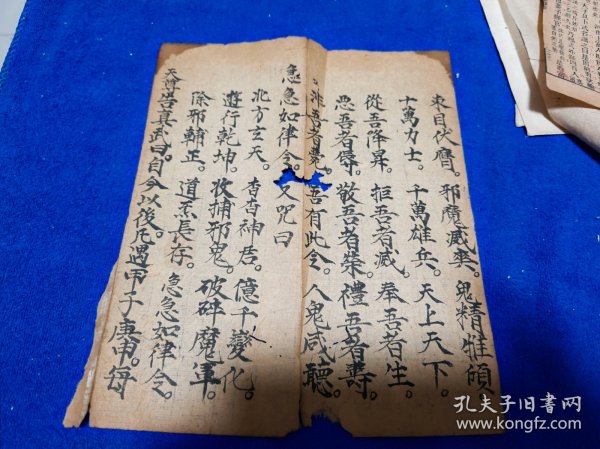 來自伏膺。邪魔滅爽。鬼精摧傾
十萬力士。千萬雄兵。天上天下。
從吾降昇。拒吾者滅。奉吾者生。
惡吾者辱。敬吾者榮。禮吾者壽。
非吾者斃。吾有此令。人鬼咸聽。
急急如律令。又咒曰
北方玄天。杳杳神居。億千變化。
遊行乾坤。收捕邪鬼。破碎魔軍。
除邪輔正。道炁長存。急急如律令。
天尊告真武曰。自今以後。凡遇甲子庚申。每
孔夫子旧书网
www.kongfz.com